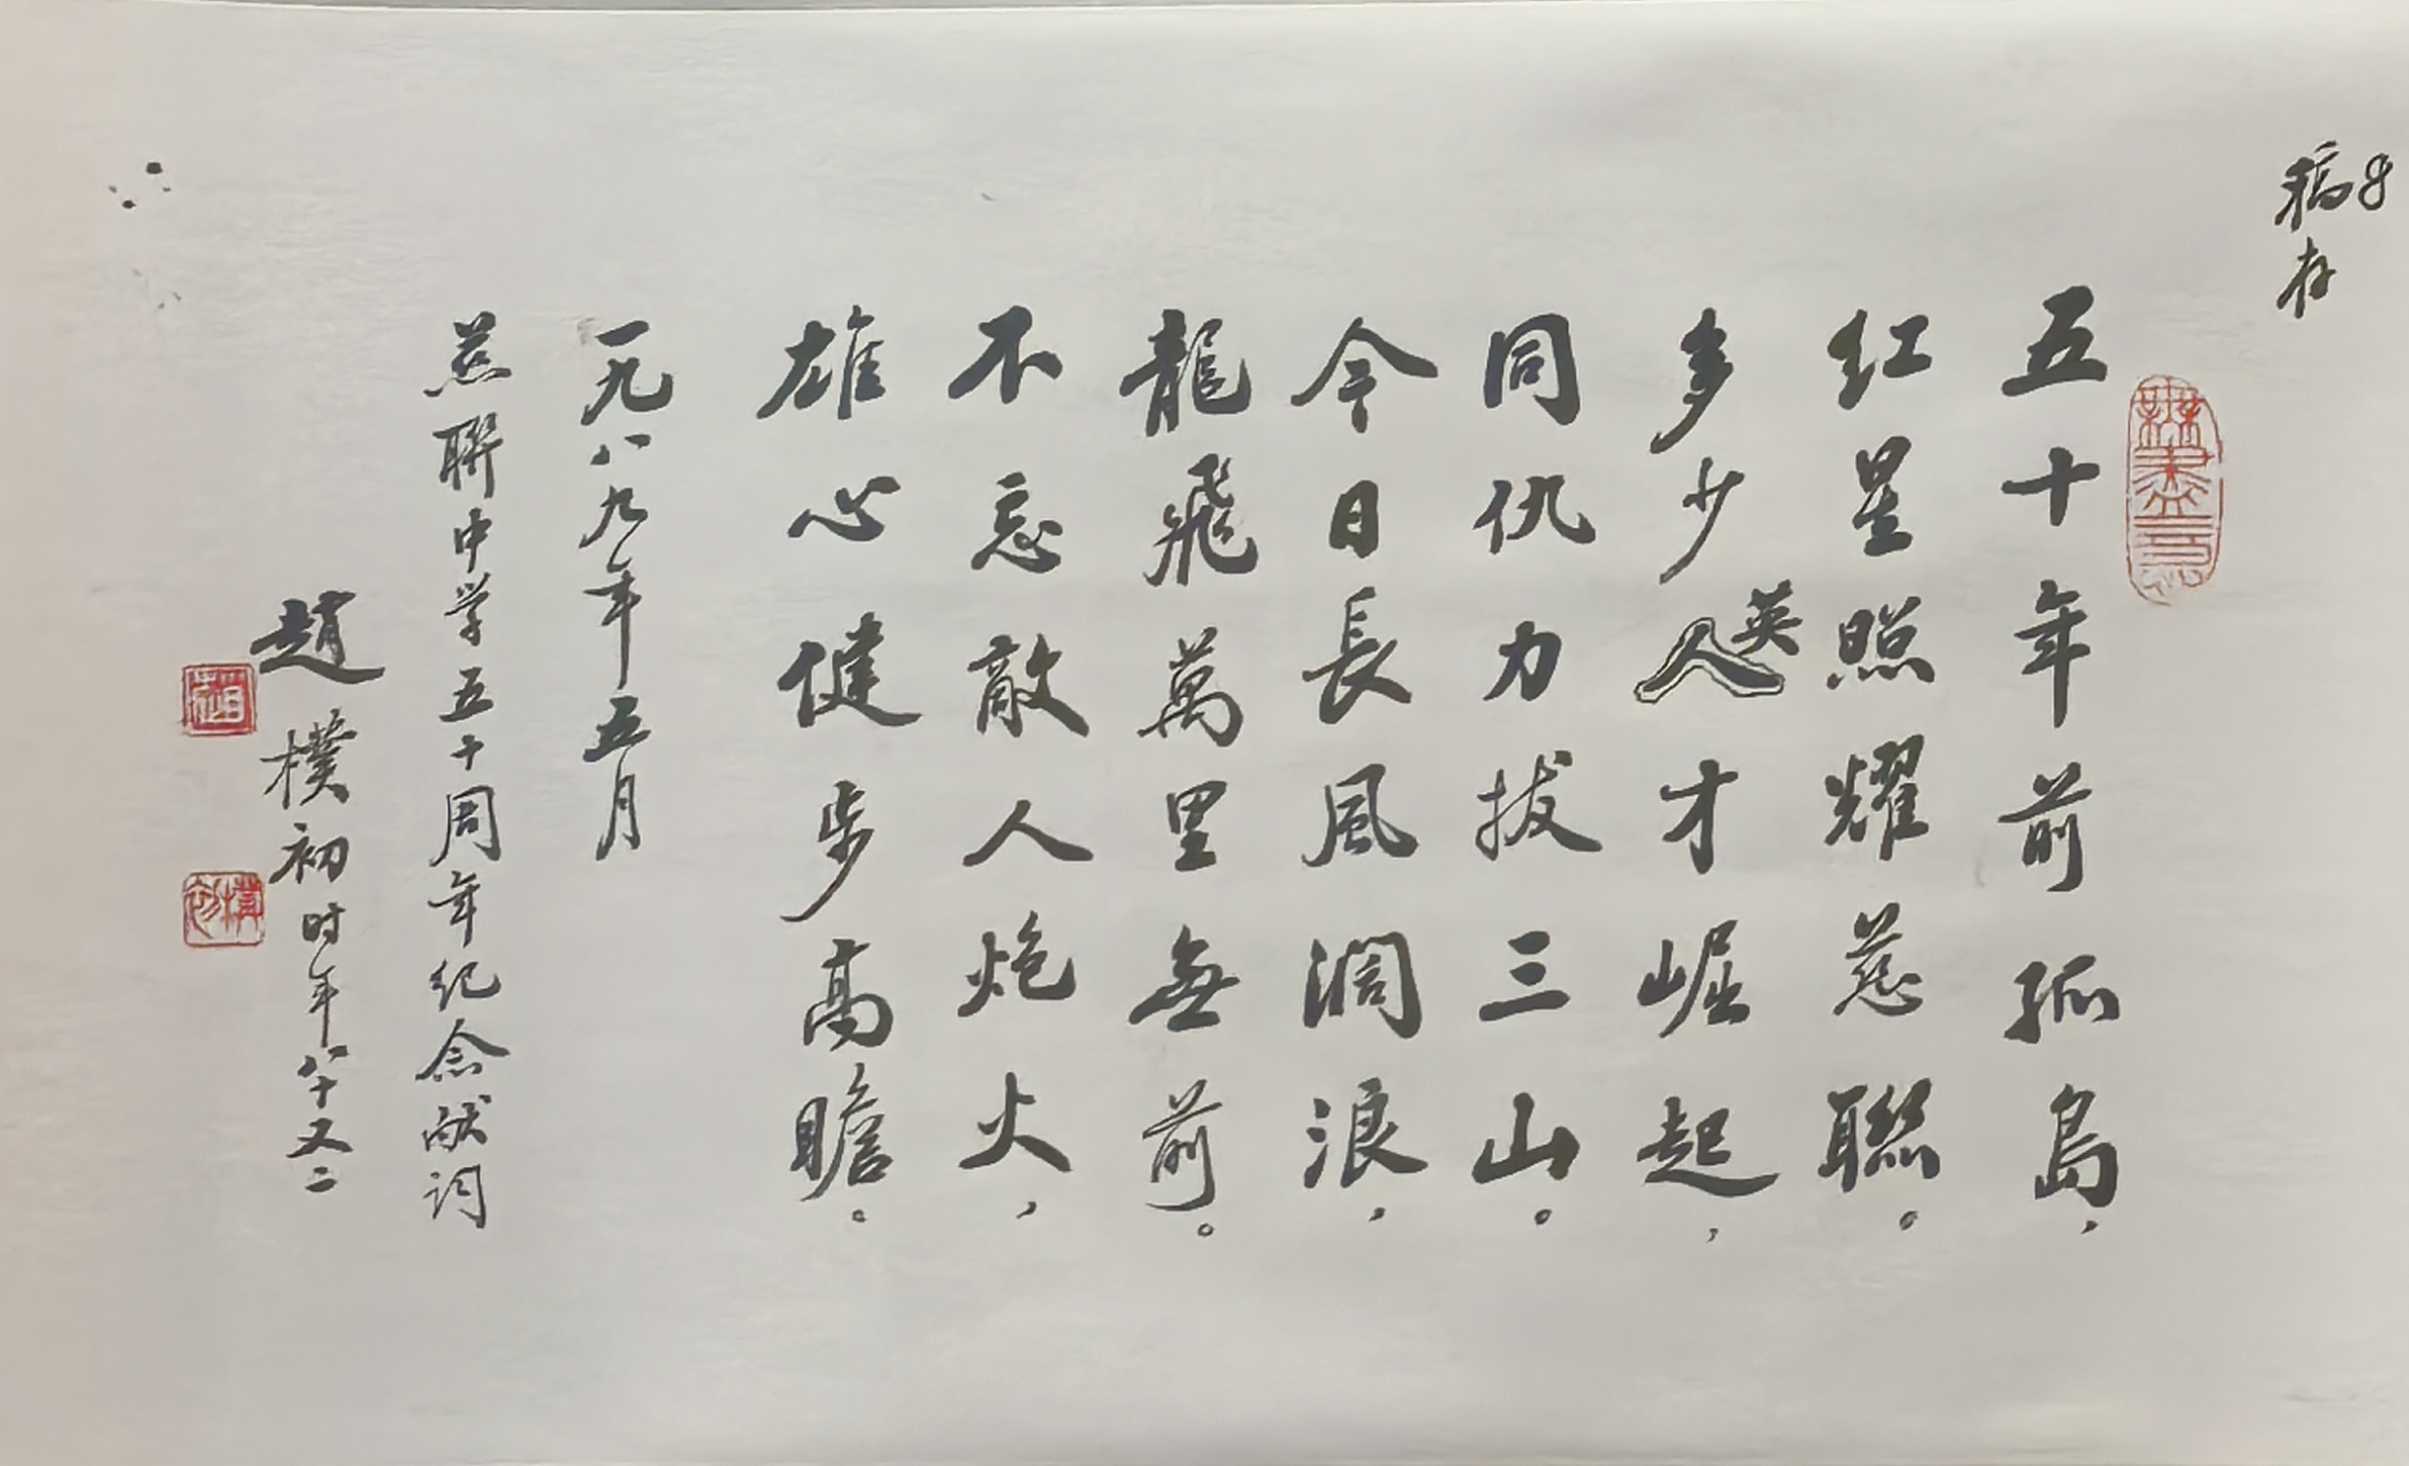 稿存
五十年前孤島，
红星照耀慈聯。
多少人英才崛起，
同仇力拔三山。
今日長風濶浪，
龍飛萬里無前。
不忘敵人炮火，
雄心健步高瞻。
一九八九年五月
慈聯中学五十周年纪念献词
趙樸初时年八十又二
趙
樸初
無盡意